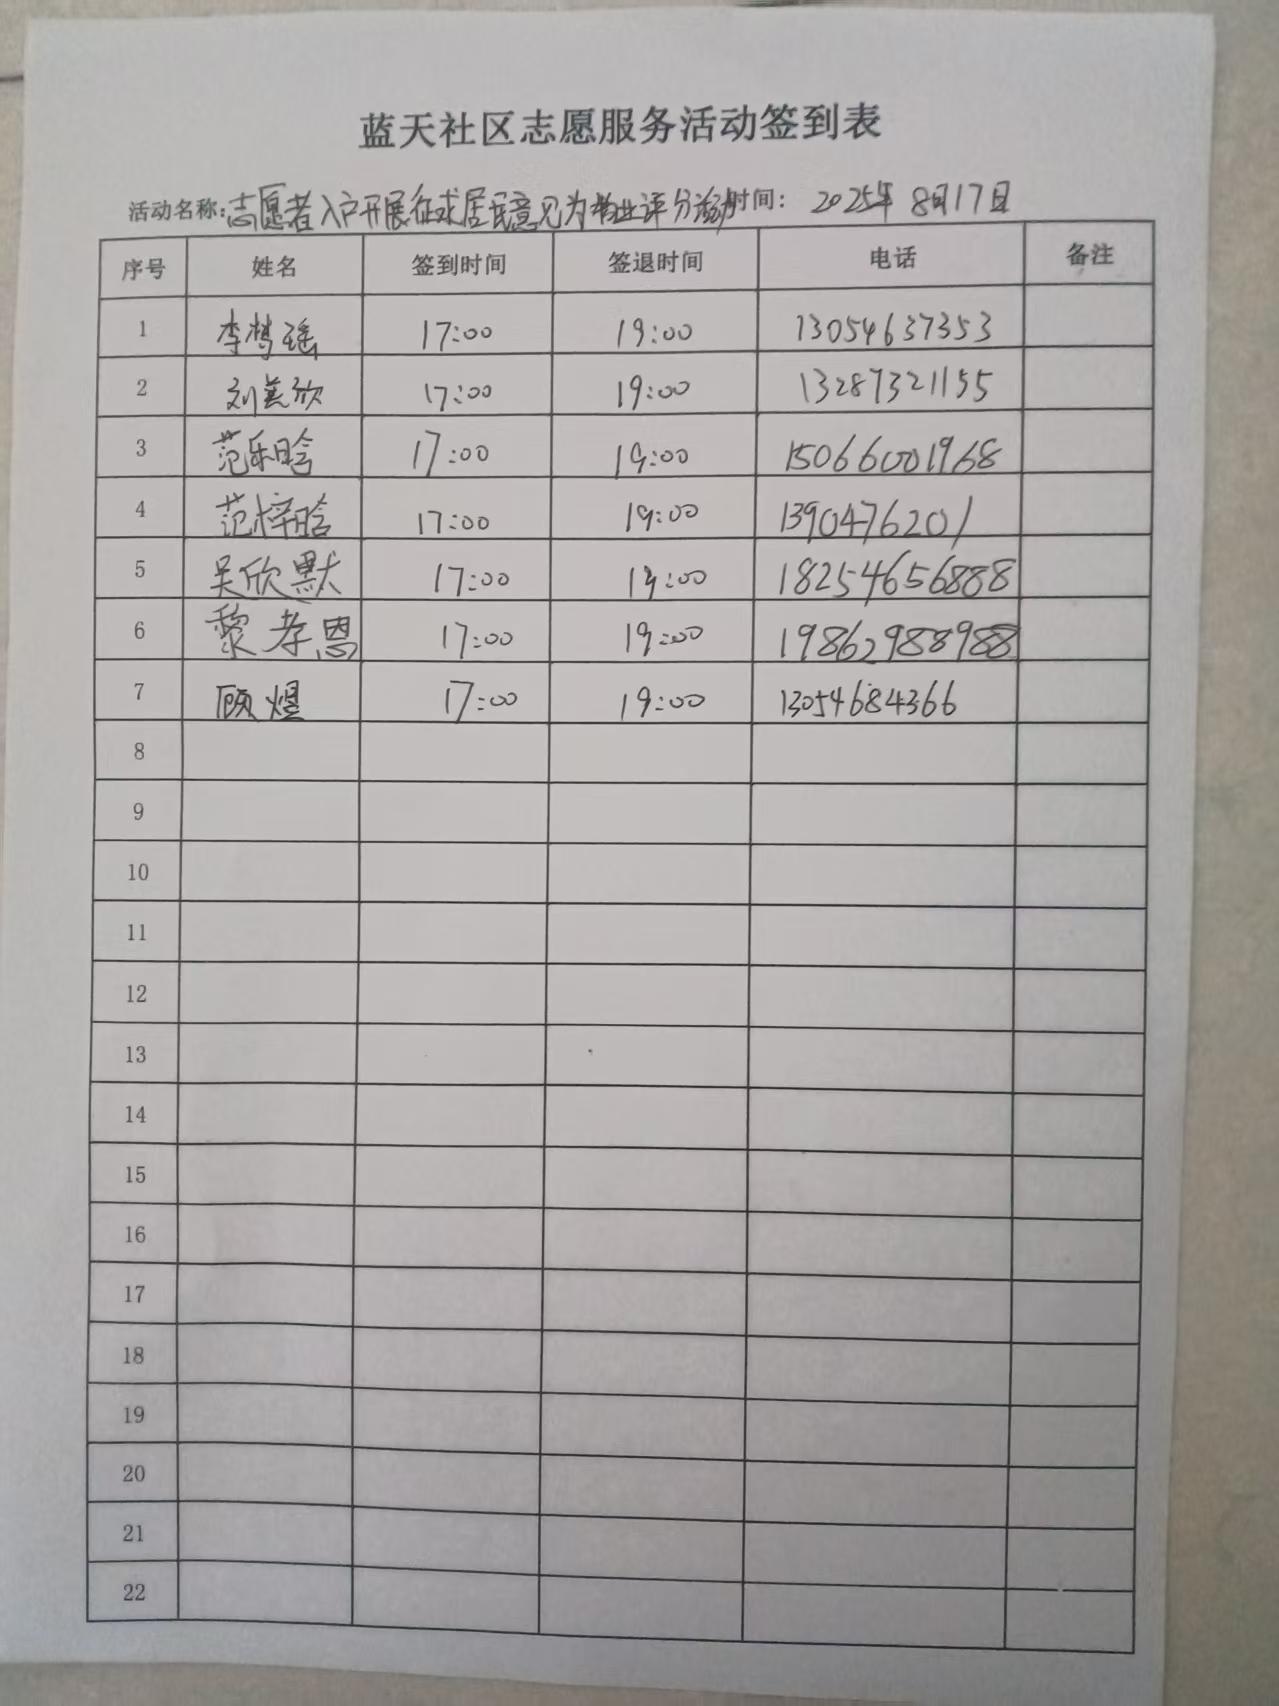 蓝天社区志愿服务活动签到表
活动名称:志愿者入户开展征求居民意见为物业评分活动时间: 2025年8月17日
序号 姓名 签到时间 签退时间 电话 备注
1 李梦瑶 17:00 19:00 13054637353
2 刘美欣 17:00 19:00 13287321155
3 范乐晗 17:00 19:00 15066001968
4 范梓晗 17:00 19:00 1390476201
5 吴欣默 17:00 19:00 18254656888
6 黎孝恩 17:00 19:00 19862988988
7 顾煜 17:00 19:00 13054684366
8
9
10
11
12
13
14
15
16
17
18
19
20
21
22